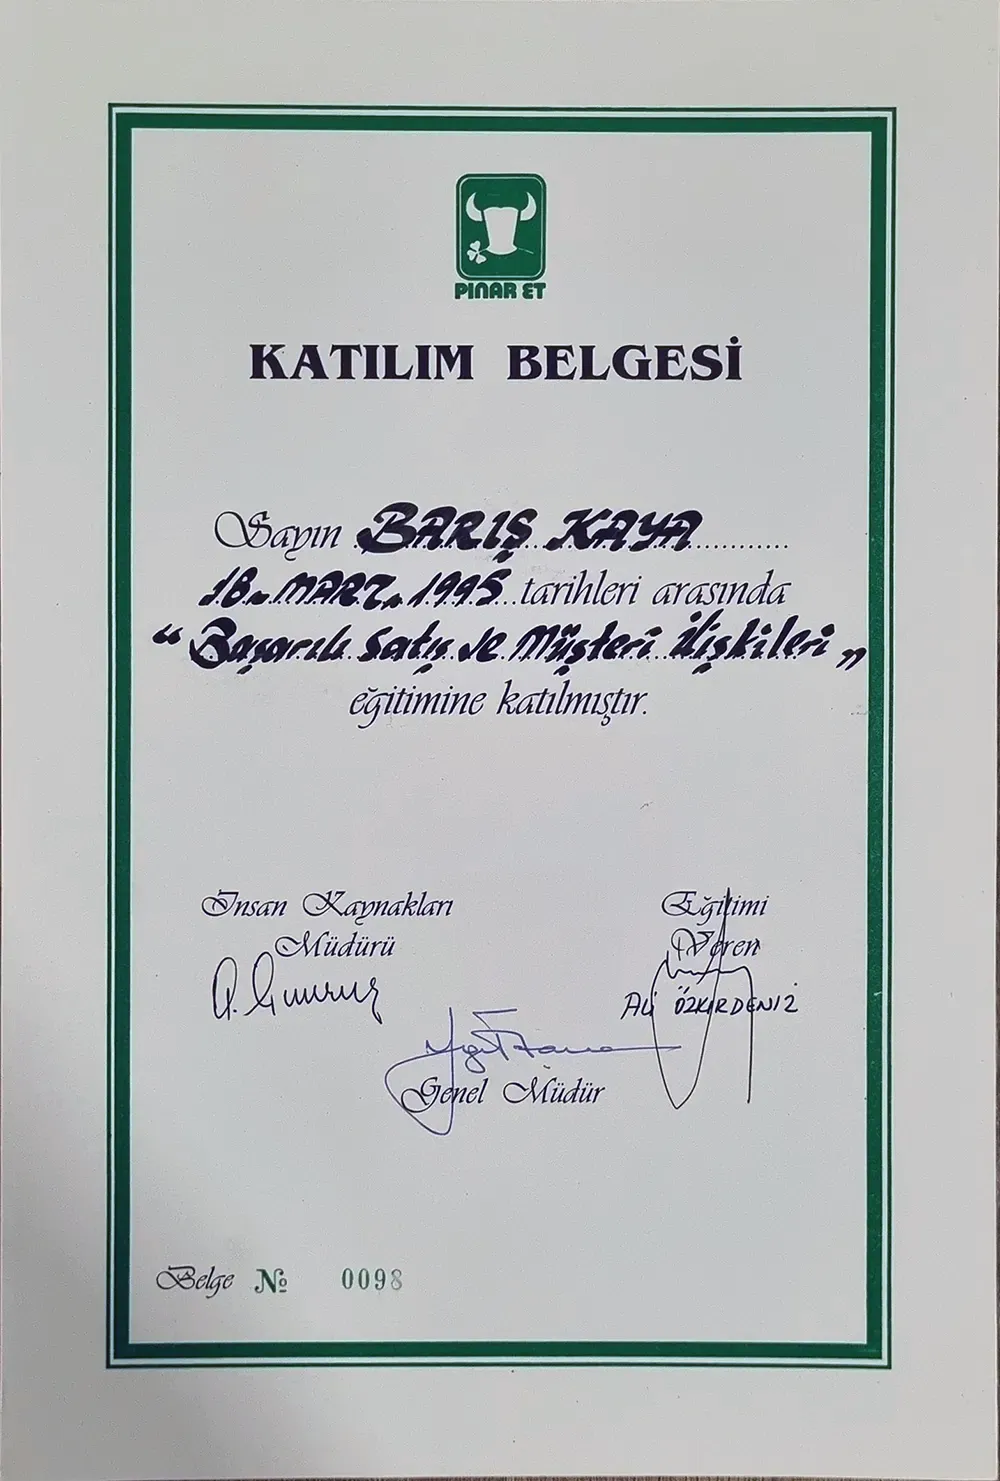 PINAR ET
KATILIM BELGESİ
Sayın BARIŞ KAYA
18. MART. 1995 tarihleri arasında
“Başarılı Satış ve Müşteri İlişkileri”
eğitimine katılmıştır.
İnsan Kaynakları
Müdürü
Eğitimi
Veren
ALİ ÖZKIRDENİZ
Genel Müdür
Belge № 0098